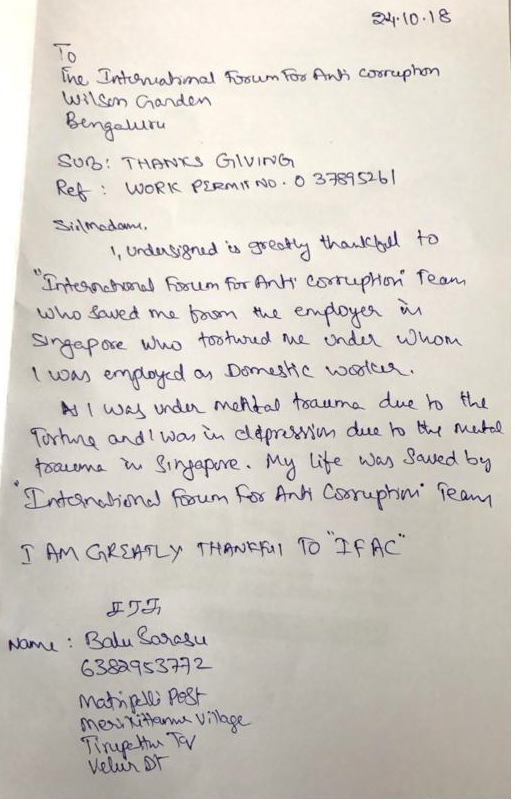 24.10.18
To
The International Forum For Anti Corruption
Wilson Garden
Bengaluru
SUB: THANKS GIVING
Ref : WORK PERMIT NO. 0 37895261
Sir/Madam,
I, undersigned is greatly thankful to
"International Forum For Anti Corruption" Team
who saved me from the employer in
Singapore who tortured me under whom
I was employed as Domestic worker.
As I was under mental trauma due to the
Torture and I was in depression due to the mental
trauma in Singapore. My life was saved by
"International Forum For Anti Corruption" Team
I AM GREATLY THANKFUL TO "IFAC"
Name : Balu Sarasu
6382953772
Post
Village
Tirupattur
Velur DT